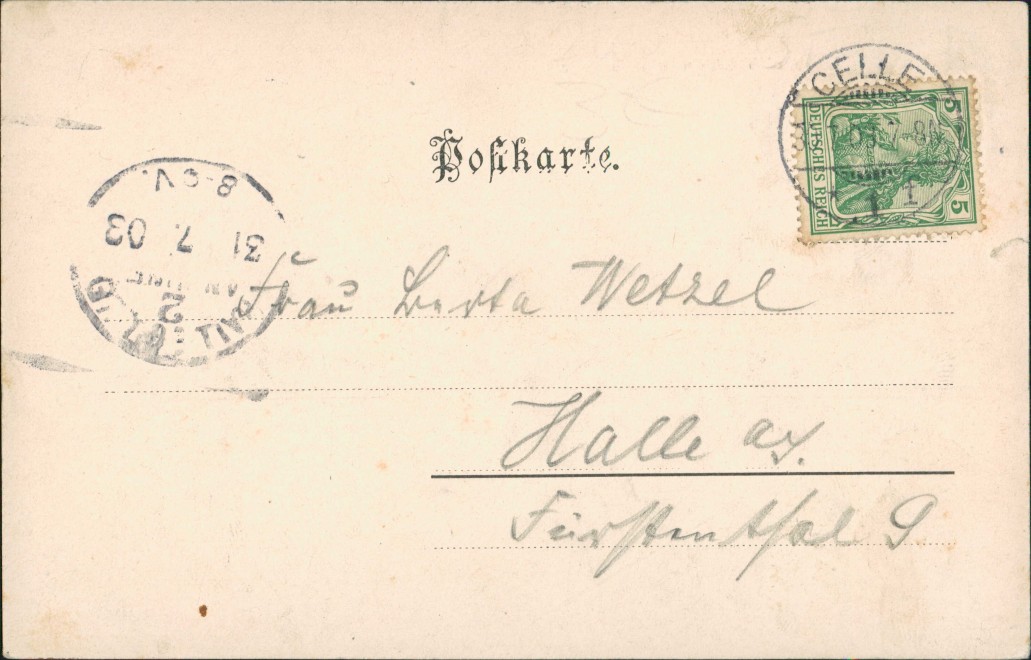 CELLE
5
5
DEUTSCHES REICH
Postkarte.
8-9V.
31 7. 03
2
Frau Berta Wetzel
Halle a/S.
Fürstenthal 9